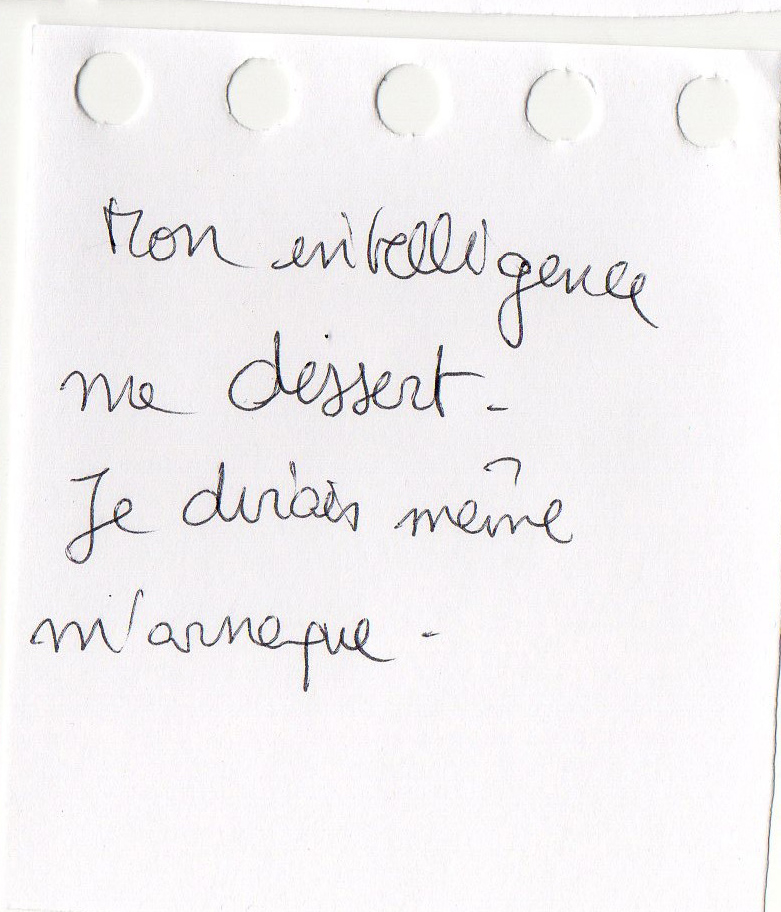 Mon intelligence
me dessert.
Je dirais même
m'arnaque.